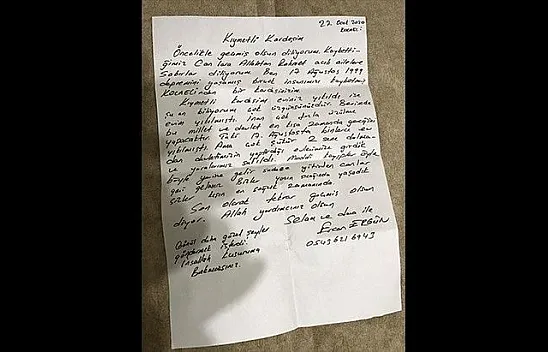 22 Ocak 2020
KOCAELİ
Kıymetli Kardeşim
Öncelikle geçmiş olsun diliyorum. Kaybetti-
ğimiz Can lara Allahtan Rahmet acılı ailelere
Sabırlar diliyorum. Ben 17 Ağustos 1999
depremini yaşamış birçok insanımızı kaybetmiş
KOCAELİnden bir kardeşinizim.
Kıymetli kardeşim eviniz yıkıldı ise
şu an biliyorum çok üzgünsünüzdür. Benimde
evim yıkılmıştı. İnan çok fazla üzülme
bu millet ve devlet en kısa zamanda gereğini
yapacaktır. 17 Ağustosta binlerce ev
yıkılmıştı. Ama çok şükür 2 sene dolma-
dan devletimizin yaptırdığı evlerimize girdik
ve yaralarımız sarıldı. Maddi kayıplar öyle
böyle yerine gelir sadece yitirilen canlar
geri gelmez. Bizler yazın sıcağında yaşadık
sizler kışın en soğuk zamanında
Son olarak tekrar geçmiş olsun
diyor. Allah yardımcınız olsun
Selam ve dua ile
Ercan ERGÜN
0543 621 6943
Gönül daha güzel şeyler
göndermek isterdi.
İnşallah kusuruma
Bakmazsınız.